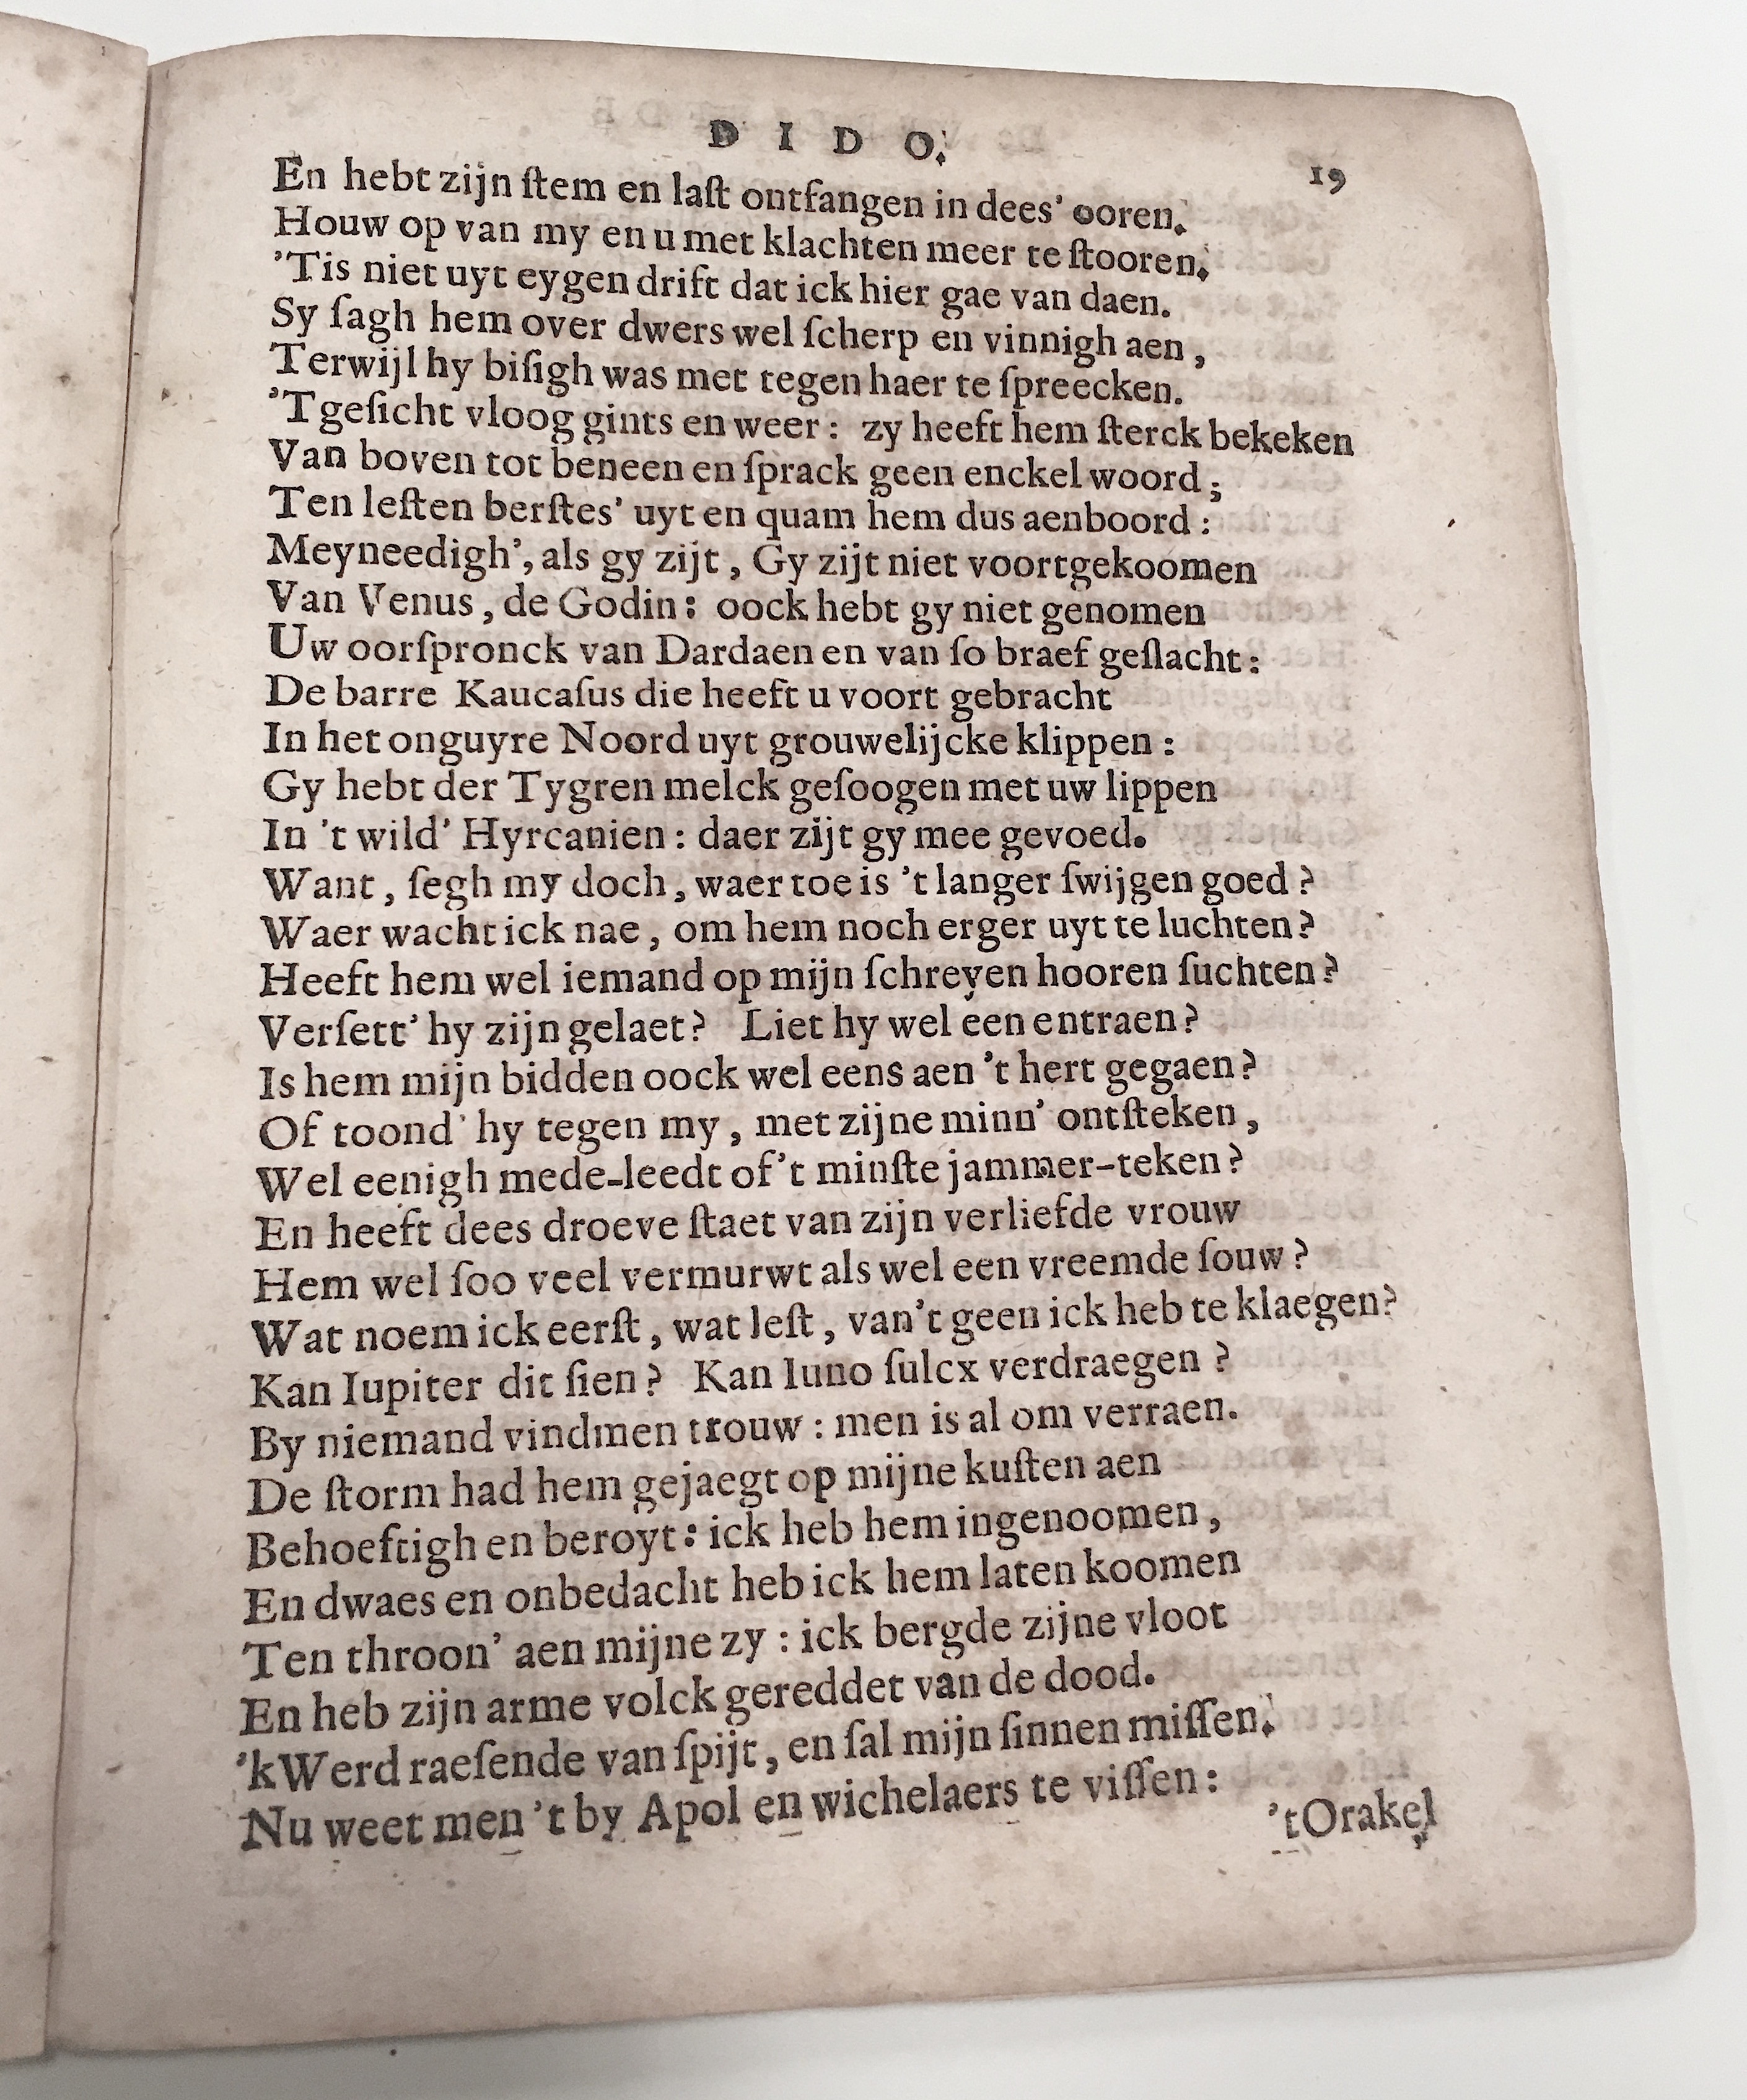 D I D O.
19
En hebt zijn ſtem en laſt ontfangen in dees' ooren.
Houw op van my en u met klachten meer te ſtooren.
'Tis niet uyt eygen drift dat ick hier gae van daen.
Sy ſagh hem over dwers wel ſcherp en vinnigh aen,
Terwijl hy biſigh was met tegen haer te ſpreecken.
'T geſicht vloog gints en weer: zy heeft hem ſterck bekeken
Van boven tot beneen en ſprack geen enckel woord;
Ten leſten berſtes' uyt en quam hem dus aenboord:
Meyneedigh', als gy zijt, Gy zijt niet voortgekoomen
Van Venus, de Godin: oock hebt gy niet genomen
Uw oorſpronck van Dardaen en van ſo braef geſlacht:
De barre Kaucaſus die heeft u voort gebracht
In het onguyre Noord uyt grouwelijcke klippen:
Gy hebt der Tygren melck geſoogen met uw lippen
In 't wild' Hyrcanien: daer zijt gy mee gevoed.
Want, ſegh my doch, waer toe is 't langer ſwijgen goed?
Waer wacht ick nae, om hem noch erger uyt te luchten?
Heeft hem wel iemand op mijn ſchreyen hooren ſuchten?
Verſett' hy zijn gelaet? Liet hy wel een entraen?
Is hem mijn bidden oock wel eens aen 't hert gegaen?
Of toond' hy tegen my, met zijne minn' ontſteken,
Wel eenigh mede-leedt of 't minſte jammer-teken?
En heeft dees droeve ſtaet van zijn verliefde vrouw
Hem wel ſoo veel vermurwt als wel een vreemde ſouw?
Wat noem ick eerſt, wat leſt, van't geen ick heb te klaegen?
Kan Iupiter dit ſien? Kan Iuno ſulcx verdraegen?
By niemand vindmen trouw: men is al om verraen.
De ſtorm had hem gejaegt op mijne kuſten aen
Behoeftigh en beroyt: ick heb hem ingenoomen,
En dwaes en onbedacht heb ick hem laten koomen
Ten throon' aen mijne zy: ick bergde zijne vloot
En heb zijn arme volck gereddet van de dood.
'k Werd raeſende van ſpijt, en ſal mijn ſinnen miſſen.
Nu weet men 't by Apol en wichelaers te viſſen:
't Orakel